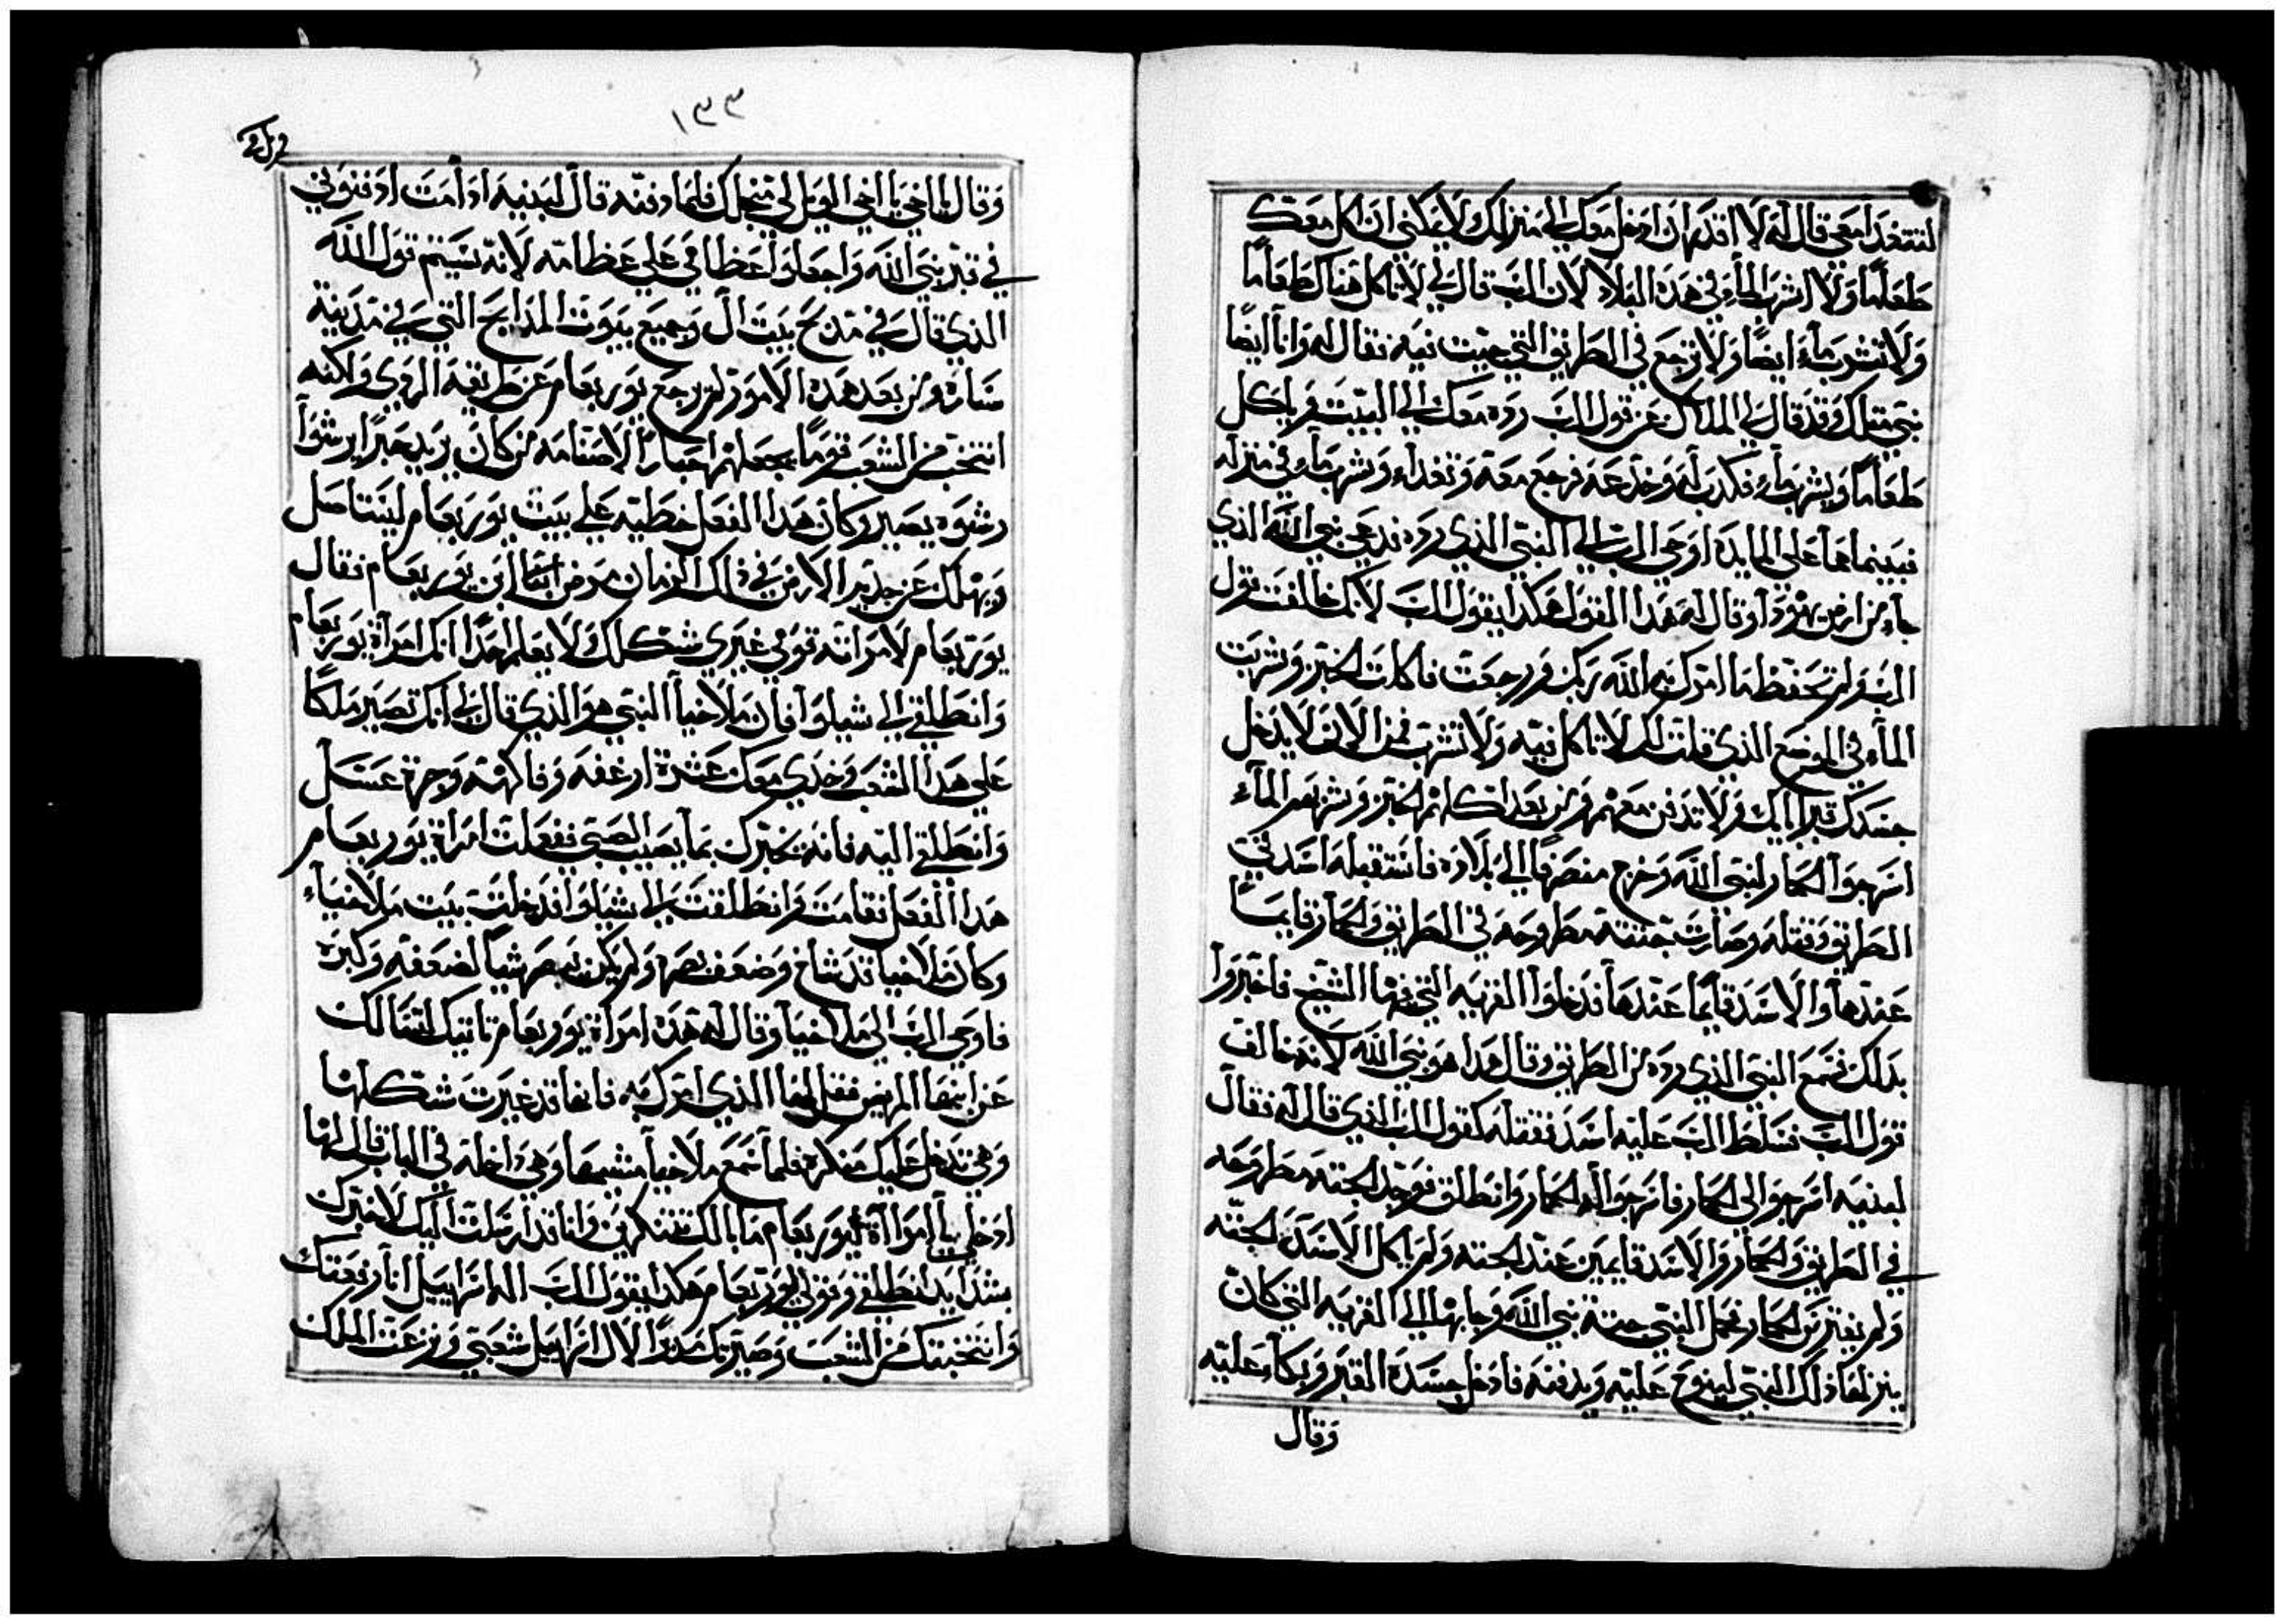 لتتغدا معي قال له لا اقدر ان ادخل معك الي منزلك لا يمكنني ان اكل معك
طعاما ولا اشرب الماء في هذه البلاد لان الرب قال لي لا تاكل هناك طعاما
ولا تشرب ماء ايضا ولا ترجع في الطريق التي جيت فيه فقال له وانا ايضا
نبي مثلك وقد قال لي الملاك عن قول الرب رده معك الي البيت فياكل
طعاما ويشرب ماء فكدب له وخدعه فرجع معه وتغداء وشرب ماء في منزله
فبينما هما علي المايده اوحي الرب الي النبي الذي رده فدعي نبي الله الذي
جاء من ارض يهودا وقال له هدا القول هكدا يقول الرب لانك خالفت قول
الرب ولم تحفظ ما امرك به الله ربك فرجعت فاكلت الخبز وشربت
الماء في الموضع الذي قلت لك لا تاكل فيه ولا تشرب فمن الان لا يدخل
جسدك قبر ابايك ولا تدفن معهم ومن بعد اكلهم الخبز وشربهم الماء
اسرجوا الحمار لنبي الله وخرج منصرفا الي بلاده فاستقبله اسد في
الطريق وقتله وصارت جتته مطروحه في الطريق والحمار قايما
عندها والاسد قايما عندها فدخلوا القريه التي فيها الشيخ فاخبروا
بدلك فسمع النبي الذي رده من الطريق وقال هدا هو نبي الله لانه خالف
قول الرب فسلط الرب عليه اسد فقتله كقول الرب الذي قال له فقال
لبنيه اسرجوا لي الحمار فاسرجوا له الحمار وانطلق فوجد الجته مطروحه
في الطريق والحمار والاسد قايمين عند الجته ولم ياكل الاسد الجته
ولم يفترس الحمار فحمل النبي جتة نبي الله وجا بها الي القريه التي كان
ينزلها ذلك النبي لينوح عليه ويدفنه فادخل جسده القبر وبكاء عليه
وقال
١٣٣
وقال يا اخي يا اخي الويل لي من اجلك فلما دفنه قال لبنيه ادا مت ادفنوني
في قبر نبي الله واجعلوا عظامي علي عظامه لانه سيتم قول الله
الذي قال في مدبح بيت ال وجميع بيوت المدابح التي في مدينة
سامره ومن بعد هده الامور لم يرجع يوربعام عن طريقه الردي ولكنه
انتخب من الشعب قوما يجعلهم احبارا لاصنامه من كان يريد حبرا يرشوا
رشوه يصير وكان هدا الفعل خطيه علي بيت يوربعام ليستاصل
ويهلك عن جديد الارض في ذلك الزمان مرض ابيا ابن يوربعام فقال
يوربعام لامراته قومي غيري شكلك ولا يعلم احدا انك امراة يوربعام
وانطلقي الي شيلوا فان ملاخيا النبي هو الذي قال لي انك تصير ملكا
علي هدا الشعب وخدي معك عشرة ارغفه وفاكهه وجرة عسل
وانطلقي اليه فانه يخبرك بما يصيب الصبي ففعلت امراة يوربعام
هدا الفعل فقامت وانطلقت الي شيلوا فدخلت بيت ملاخياء
وكان ملاخيا قد شاخ وضعف بصره ولم يكن يبصر شيا لضعفه وكبره
فاوحي الرب الي ملاخيا وقال له هده امراة يوربعام تاتيك لتسالك
عن ابنها المريض فقل لها الذي امرك به فانها قد غيرت شكلها
وهي تدخل عليك متنكره فلما سمع ملاخيا مشيها وهي داخله في الباب قال لها
ادخلي يا امراة يوربعام ما بالك تتنكرين وانا قد ارسلت اليك لاخبرك
بشدايد انطلقي وقولي ليوربعام هكدا يقول الرب اله اسراييل انا رفعتك
وانتخبتك من الشعب وصيرتك مدبرا لال اسراييل شعبي ونزعت الملك